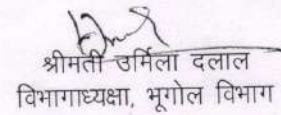 श्रीमती उर्मिला दलाल
विभागाध्यक्षा, भूगोल विभाग